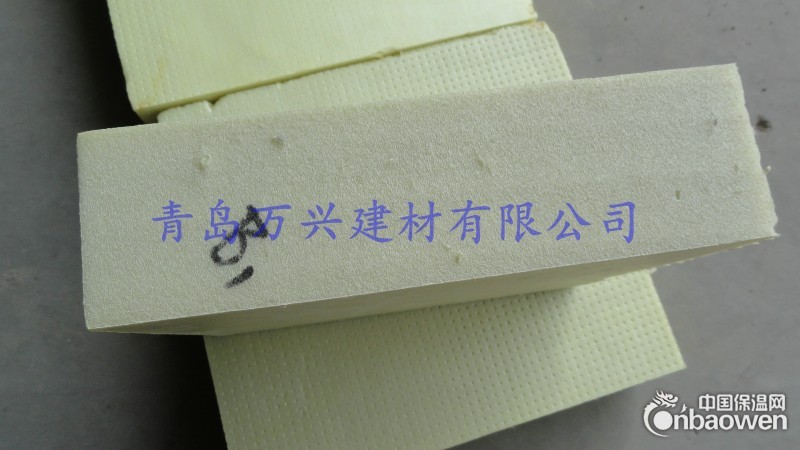 青岛万兴建材有限公司
中国保温网
Cnbaowen